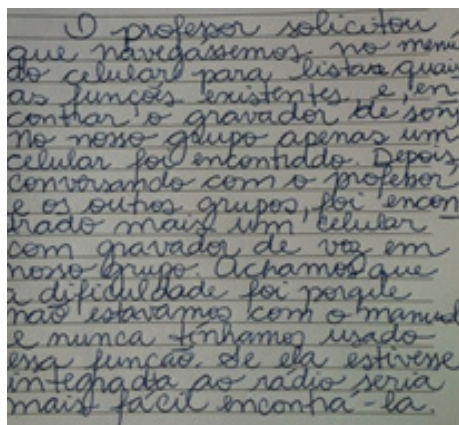 O professor solicitou
que navegassemos no menu
do celular para listar quais
as funções existentes, e, en
contrar o gravador de som,
No nosso grupo apenas um
celular foi encontrado. Depois,
conversando com o professor,
e os outros grupos, foi encon
trado mais um celular
com gravador de voz em
nosso grupo. Achamos que
a dificuldade foi porque
não estavamos com o manual
e nunca tínhamos usado
essa função. Se ela estivesse
integrada ao rádio seria
mais fácil encontrá-la.